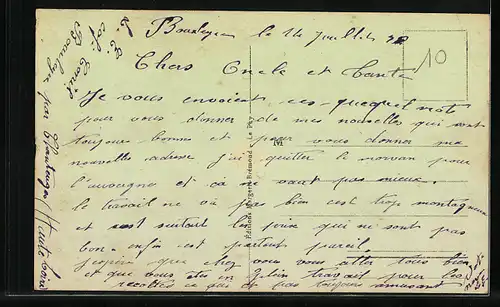 le 14 Juillet
10
Chers Oncle et Tante
Je vous envoient ces quequel mots
pour vous donner de mes nouvelles qui sont
toujour bonne et pour vous donner ma
nouvelles adresse j'ai quitter le morvan pour
l'auvergne et ça ne vaut pas mieux.
le travail ne va pas bien c'est trop montagneux
et surtout les prix qui ne sont pas
bon. enfin est partout pareil
j'espère que chez vous vous aller tous bien
et que vous ete en plein travail pour les
recoltes ce qui est pas toujours amusant
Editions Margerit-Brémond - Le Puy
par Chanteuges Haute Loire